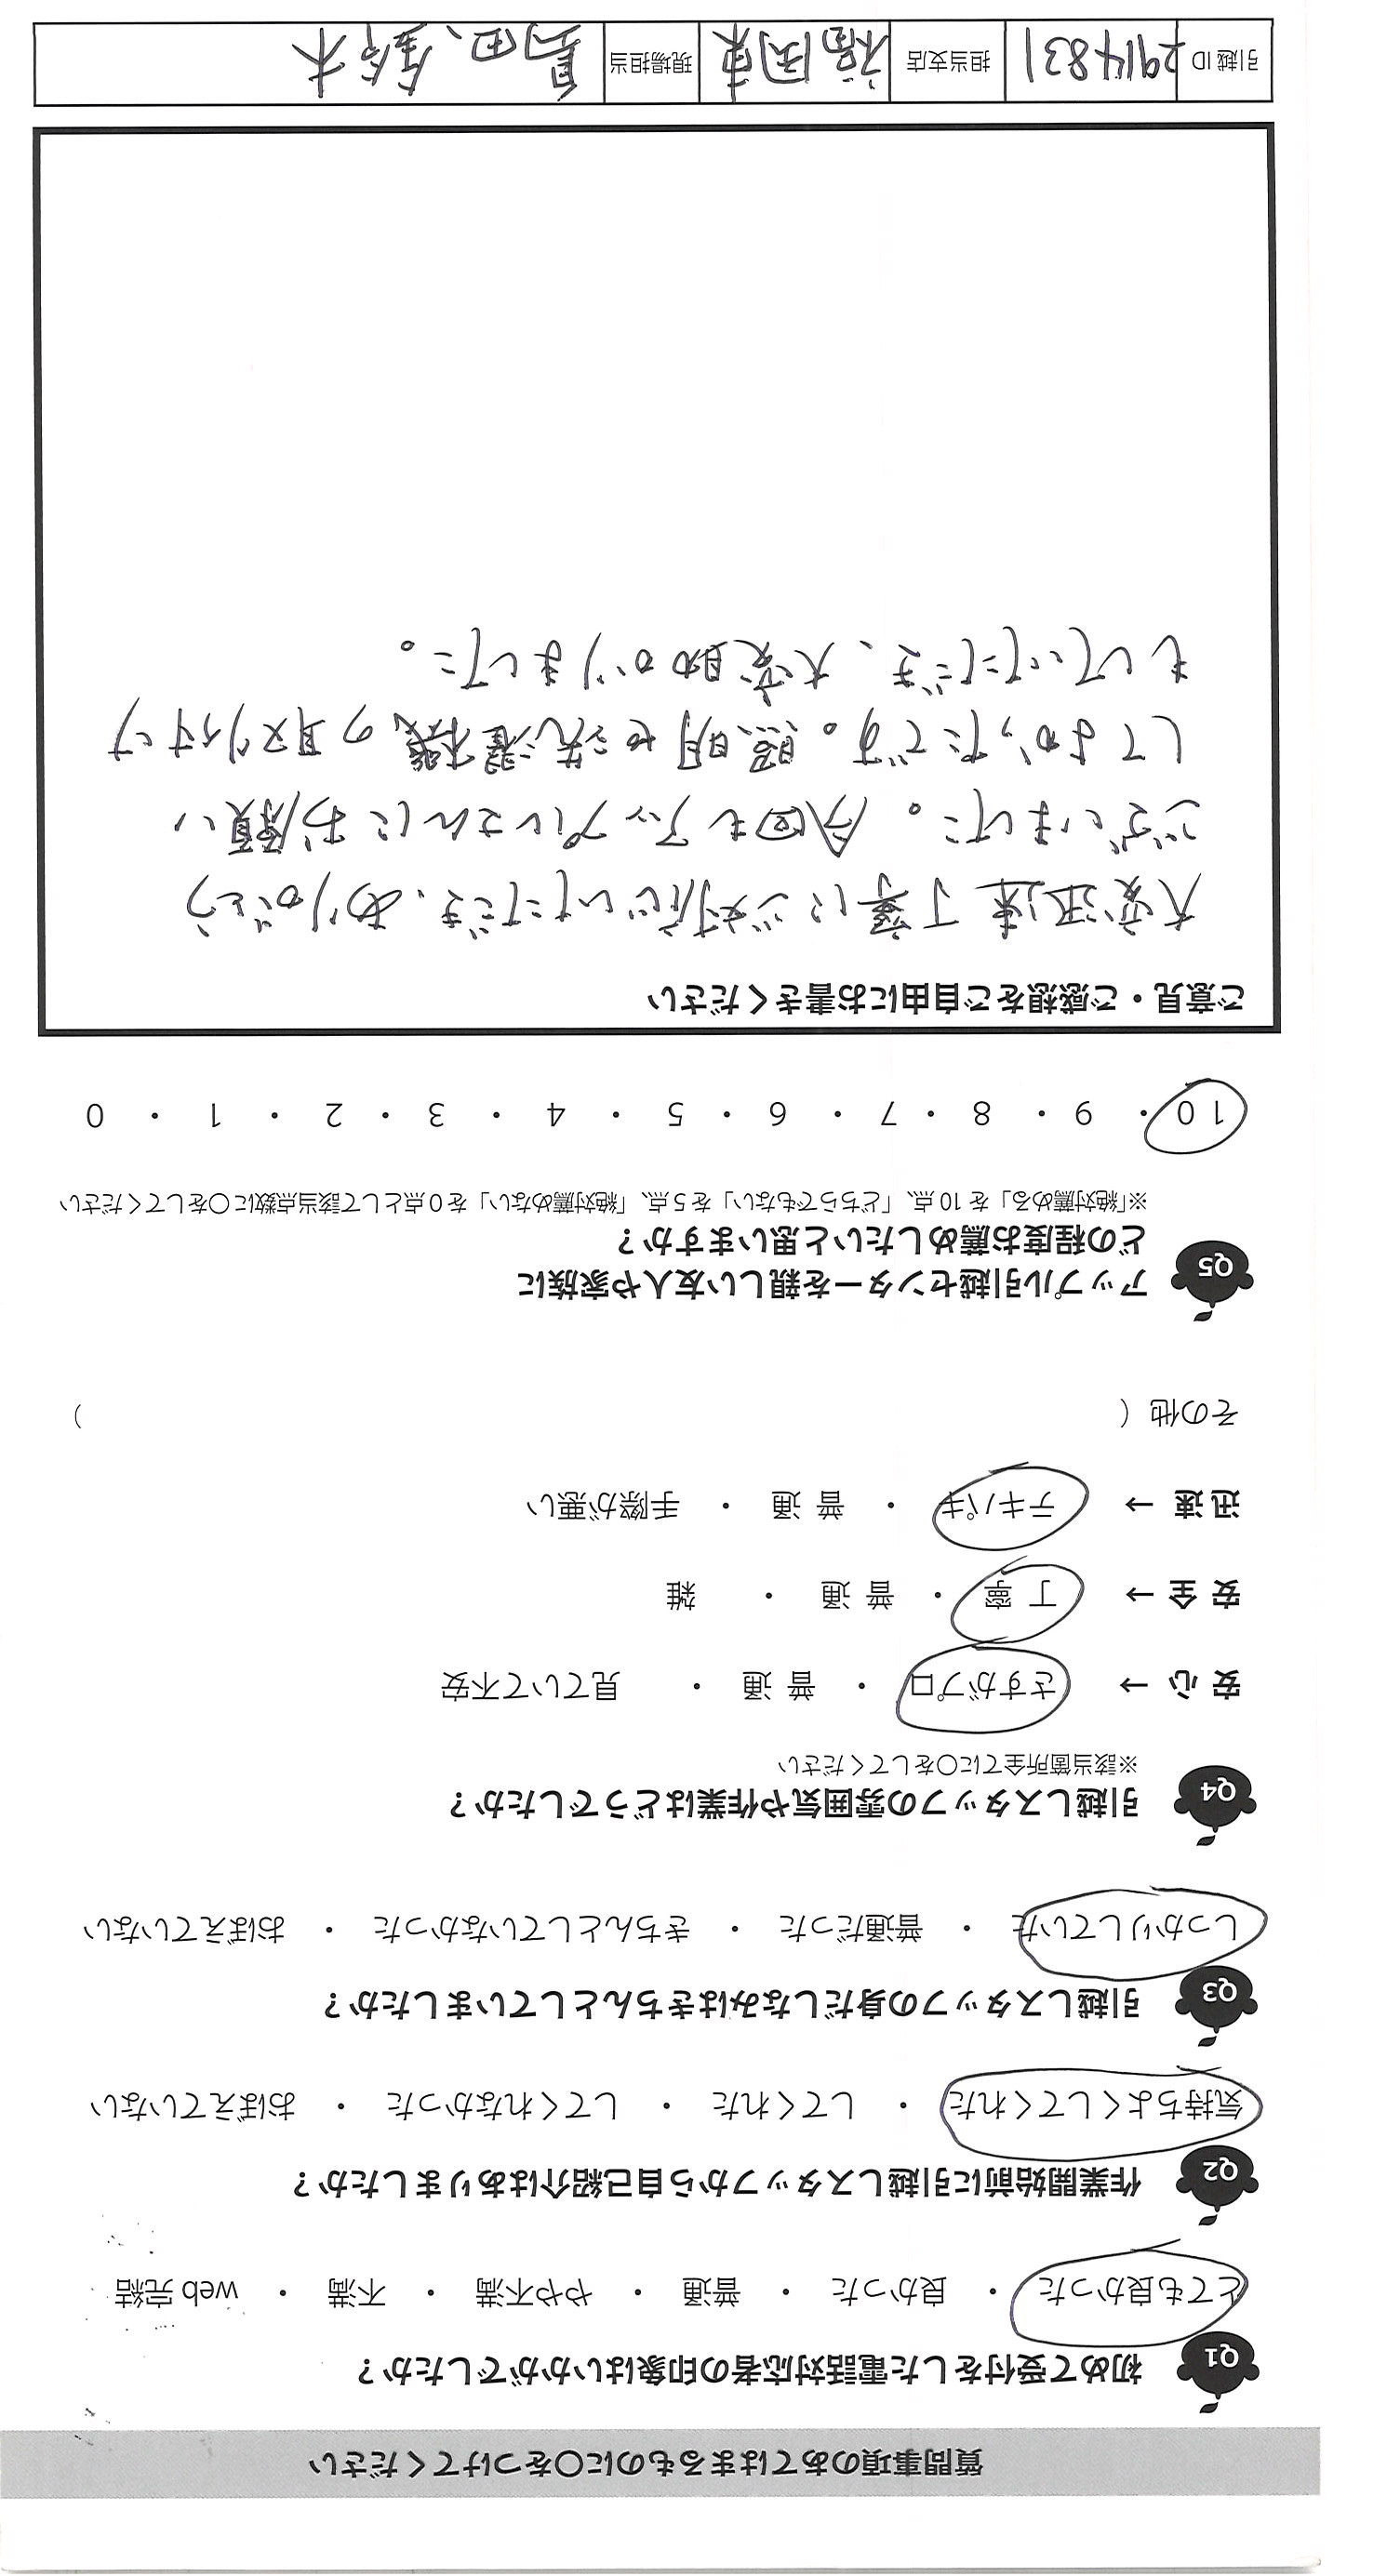 質問事項のあてはまるものに○をつけてください
Q1 初めて受付をした電話対応者の印象はいかがでしたか？
とても良かった ・ 良かった ・ 普通 ・ やや不満 ・ 不満 ・ web 完結
Q2 作業開始前に引越しスタッフから自己紹介はありましたか？
気持ちよくしてくれた ・ してくれた ・ してくれなかった ・ おぼえていない
Q3 引越しスタッフの身だしなみはきちんとしていましたか？
しっかりしていた ・ 普通だった ・ きちんとしていなかった ・ おぼえていない
Q4 引越しスタッフの雰囲気や作業はどうでしたか？
※該当箇所全てに○をしてください
安心 → さすがプロ ・ 普通 ・ 見ていて不安
安全 → 丁寧 ・ 普通 ・ 雑
迅速 → テキパキ ・ 普通 ・ 手際が悪い
その他 （ ）
Q5 アップル引越センターを親しい友人や家族に
どの程度お薦めしたいと思いますか？
※「絶対薦める」を 10 点、「どちらでもない」を 5 点、「絶対薦めない」を 0 点として該当点数に○をしてください
10 ・ 9 ・ 8 ・ 7 ・ 6 ・ 5 ・ 4 ・ 3 ・ 2 ・ 1 ・ 0
ご意見・ご感想をご自由にお書きください
大変迅速丁寧にご対応いただき、ありがとう
ございました。今回もアップルさんにお願い
してよかったです。照明や洗濯機の取り付け
もしていただき、大変助かりました。
引越 ID 2914831 担当支店 福岡東 現場担当 島田、鈴木